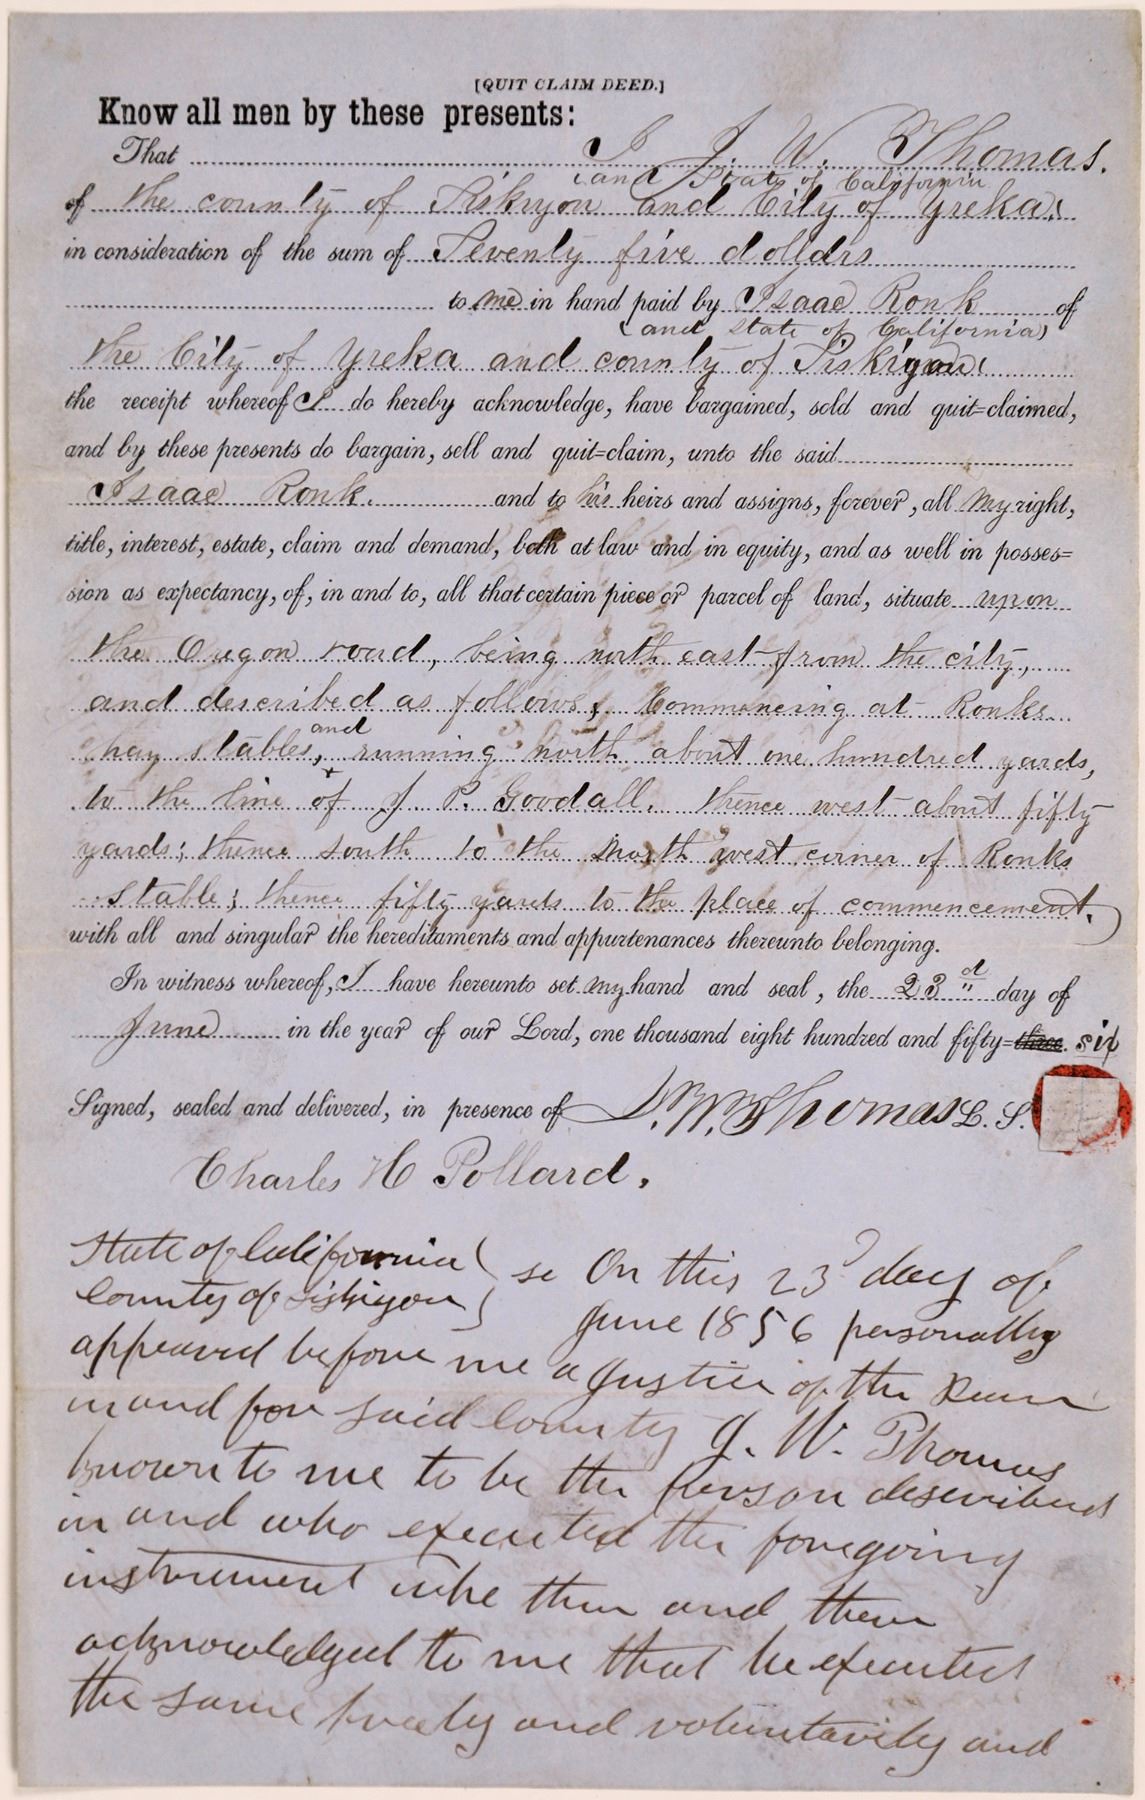 [QUIT CLAIM DEED.]
Know all men by these presents:
That I J. W. Thomas.
(and State of California
of the county of Siskiyou and City of Yreka,
in consideration of the sum of Seventy five dollars
to me in hand paid by Isaac Ronk of
(and state of California)
the City of Yreka and county of Siskiyou
the receipt whereof I do hereby acknowledge, have bargained, sold and quit=claimed,
and by these presents do bargain, sell and quit=claim, unto the said
Isaac Ronk. and to his heirs and assigns, forever, all my right,
title, interest, estate, claim and demand, both at law and in equity, and as well in posses=
sion as expectancy, of, in and to, all that certain piece or parcel of land, situate upon
the Oregon road, being north east from the city,
and described as follows, Commencing at Ronks
and
hay stables, running north about one hundred yards,
to the line of J. P. Goodall. thence west about fifty
yards; thence south to the north west corner of Ronks
stable; thence fifty yards to the place of commencement.
with all and singular the hereditaments and appurtenances thereunto belonging.
In witness whereof, I have hereunto set my hand and seal, the 23d day of
June in the year of our Lord, one thousand eight hundred and fifty=three. six
Signed, sealed and delivered, in presence of J. W. Thomas L. S.
Charles H Pollard.
State of California
County of Siskiyou } ss On this 23d day of
June 1856 personally
appeared before me a Justice of the Peace
in and for said County J. W. Thomas
known to me to be the person described
in and who executed the foregoing
instrument who then and there
acknowledged to me that he executed
the same freely and voluntarily and